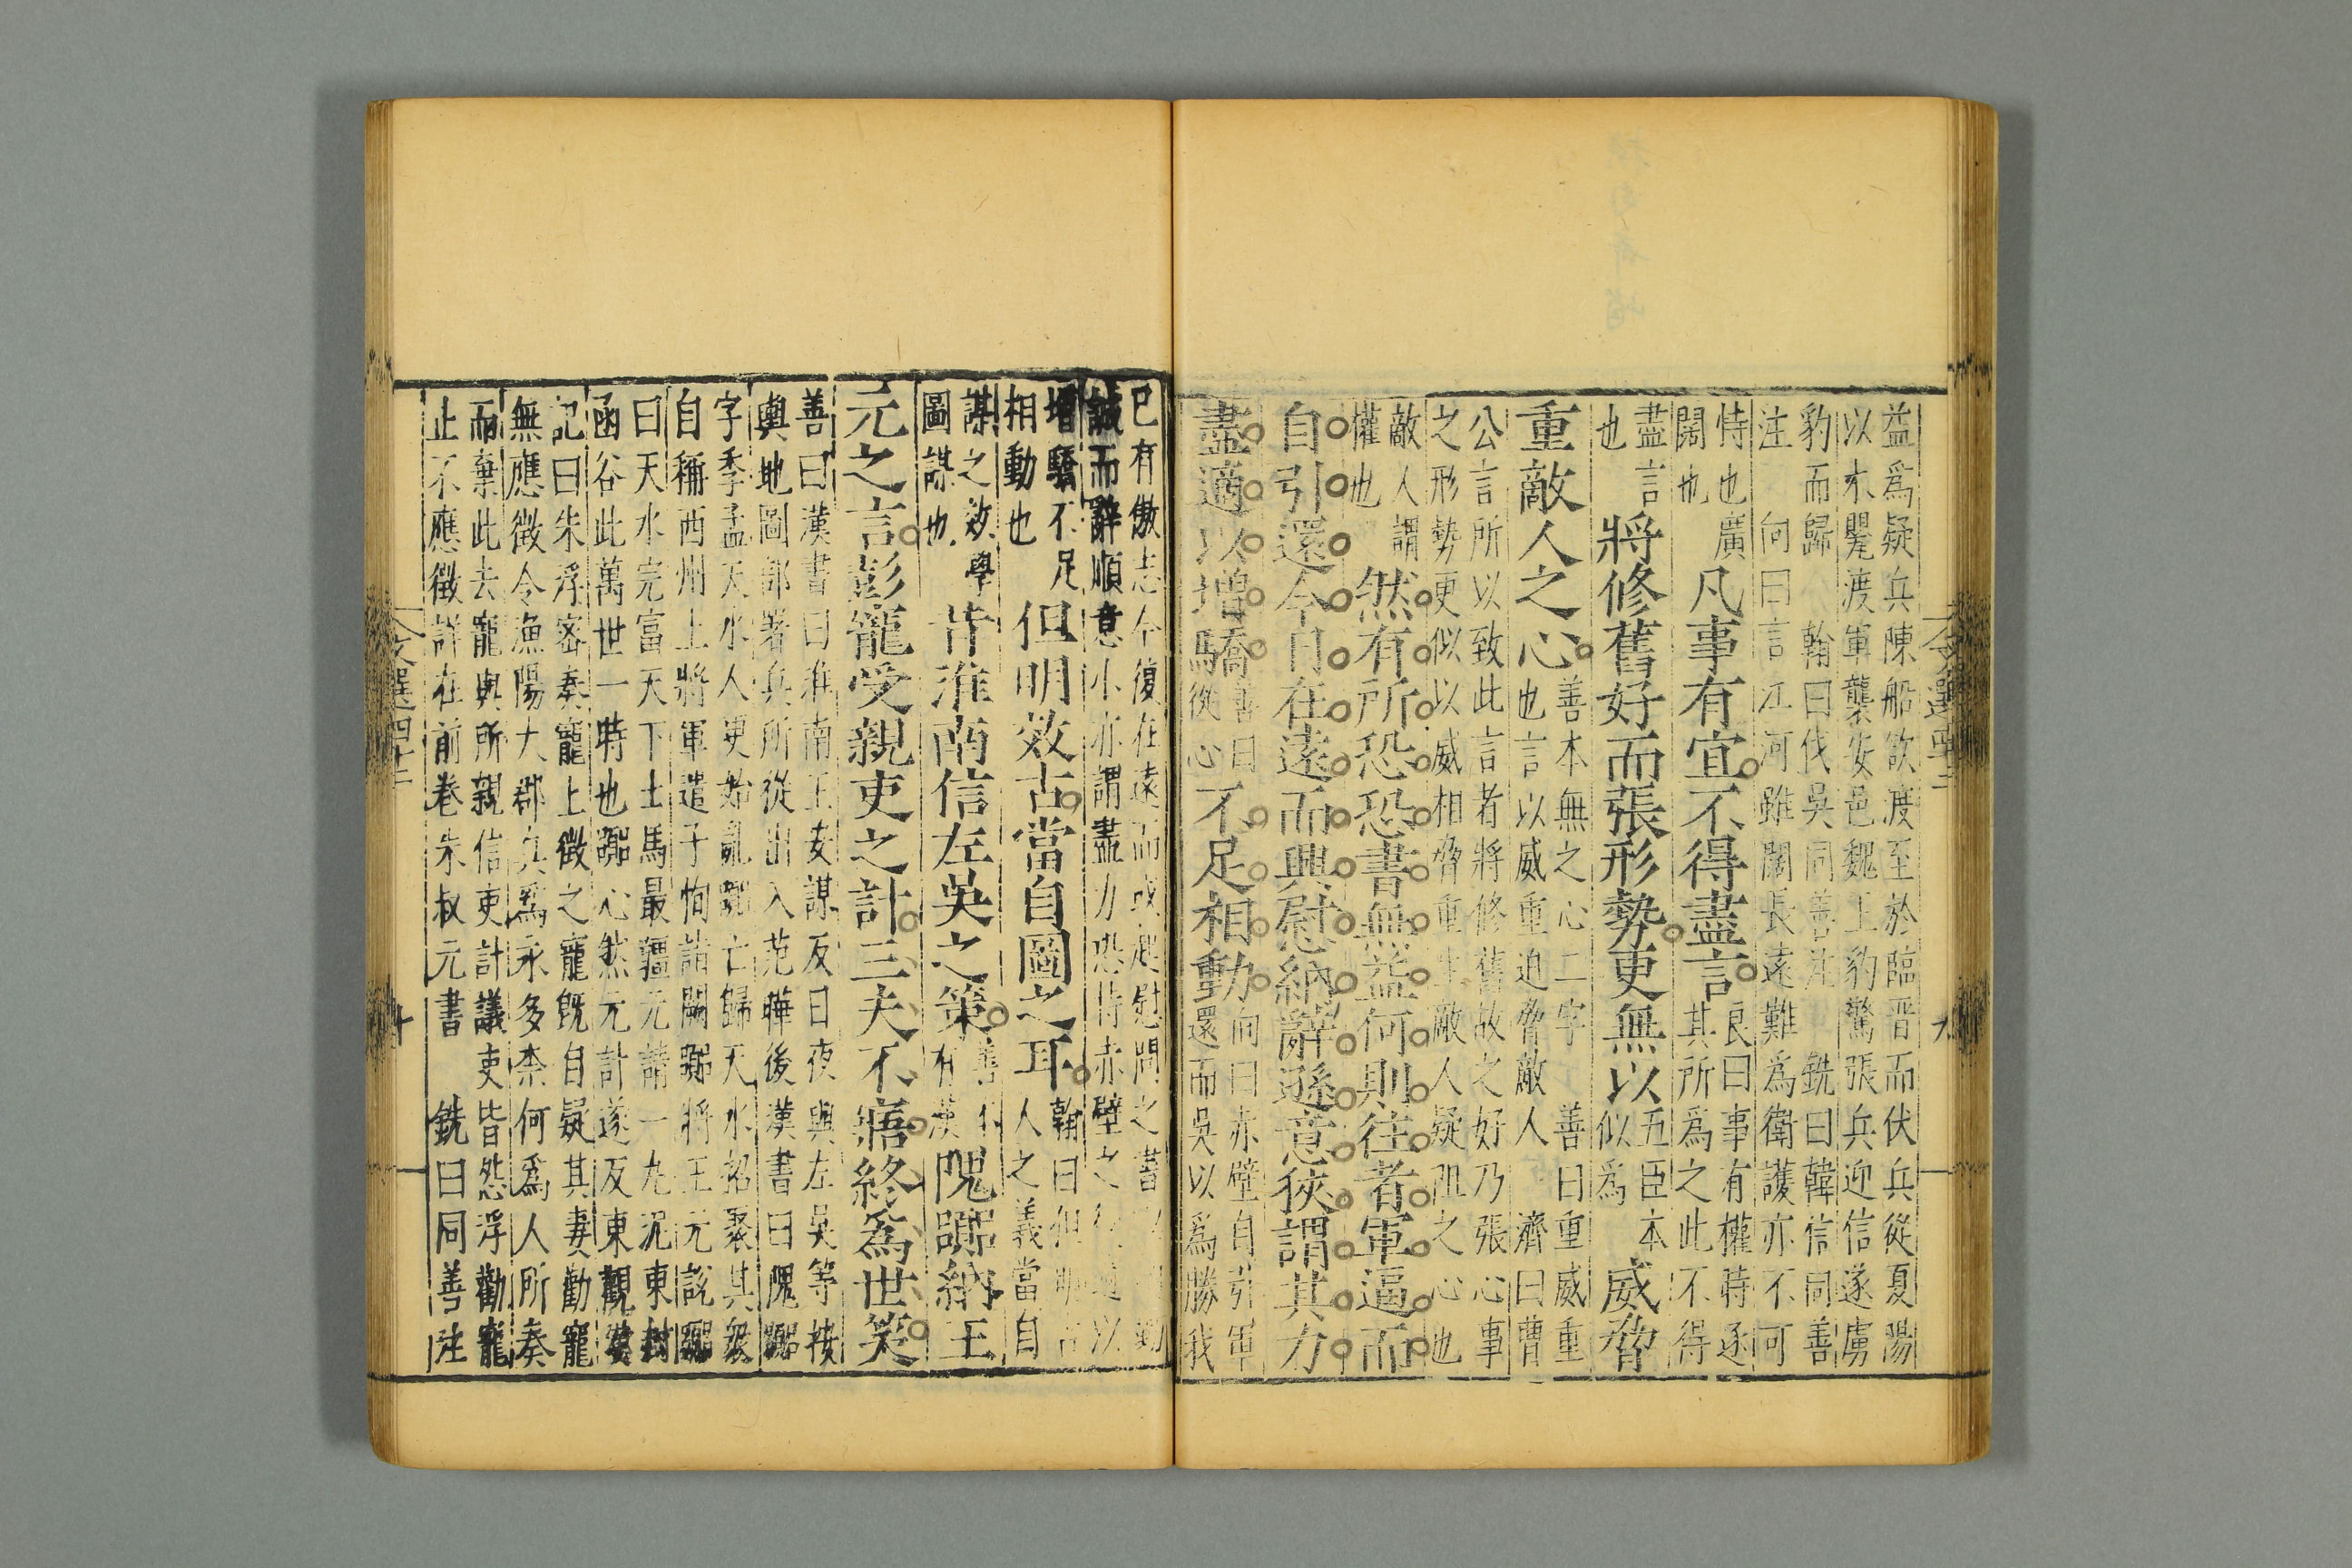 文選四十二 九
益爲疑兵陳船欲渡至於臨晋而伏兵從夏陽
以木罌渡軍襲安邑魏王豹驚張兵迎信遂虜
豹而歸 翰曰伐吳同善注 銑曰韓信同善
注 向曰言江河雖闊長遠難爲衛護亦不可
恃也廣
闊也
凡事有宜不得盡言
良曰事有權時逐
其所爲之此不得
盡言
也
將修舊好而張形勢更無以
五臣本
似爲
威脅
重敵人之心
善本無之心二字 善曰重威重
也言以威重迫脅敵人 濟曰曹
公言所以致此言者將修舊故之好乃張心事
之形勢更似以威相脅重生敵人疑阻之心也
敵人謂
權也
然有所恐恐書無益何則往者軍逼而
自引還今日在遠而興慰納辭遜意狹謂其力
盡適以增驕
善曰
從心
不足相動
向曰赤壁自引軍
還而吳以爲勝我
已有傲志今復在遠而或起慰問之書
誠而辭順意小亦謂盡力恐恃赤壁之役適以
增驕不足
相動也
但明效古當自圖之耳
翰曰但明古
人之義當自
謀之效學
圖謀也
昔淮南信左吳之策
善本
有漢
隗嚻納王
元之言彭寵受親吏之計三夫不寤終爲世笑
善曰漢書曰淮南王安謀反日夜與左吳等按
輿地圖部署兵所從出入范曄後漢書曰隗嚻
字季孟天水人更始亂嚻亡歸天水招聚其衆
自稱西州上將軍遣子恂詣闕嚻將王元說嚻
曰天水完富天下士馬最彊元請一丸泥東封
函谷此萬世一時也嚻心然元計遂反東觀漢
記曰朱浮密奏寵上徵之寵旣自疑其妻勸寵
無應徵今漁陽大郡兵爲永多柰何爲人所奏
而棄此去寵與所親信吏計議吏皆怨浮勸寵
止不應徵詳在前卷朱叔元書 銑曰同善注
文選四十二 十